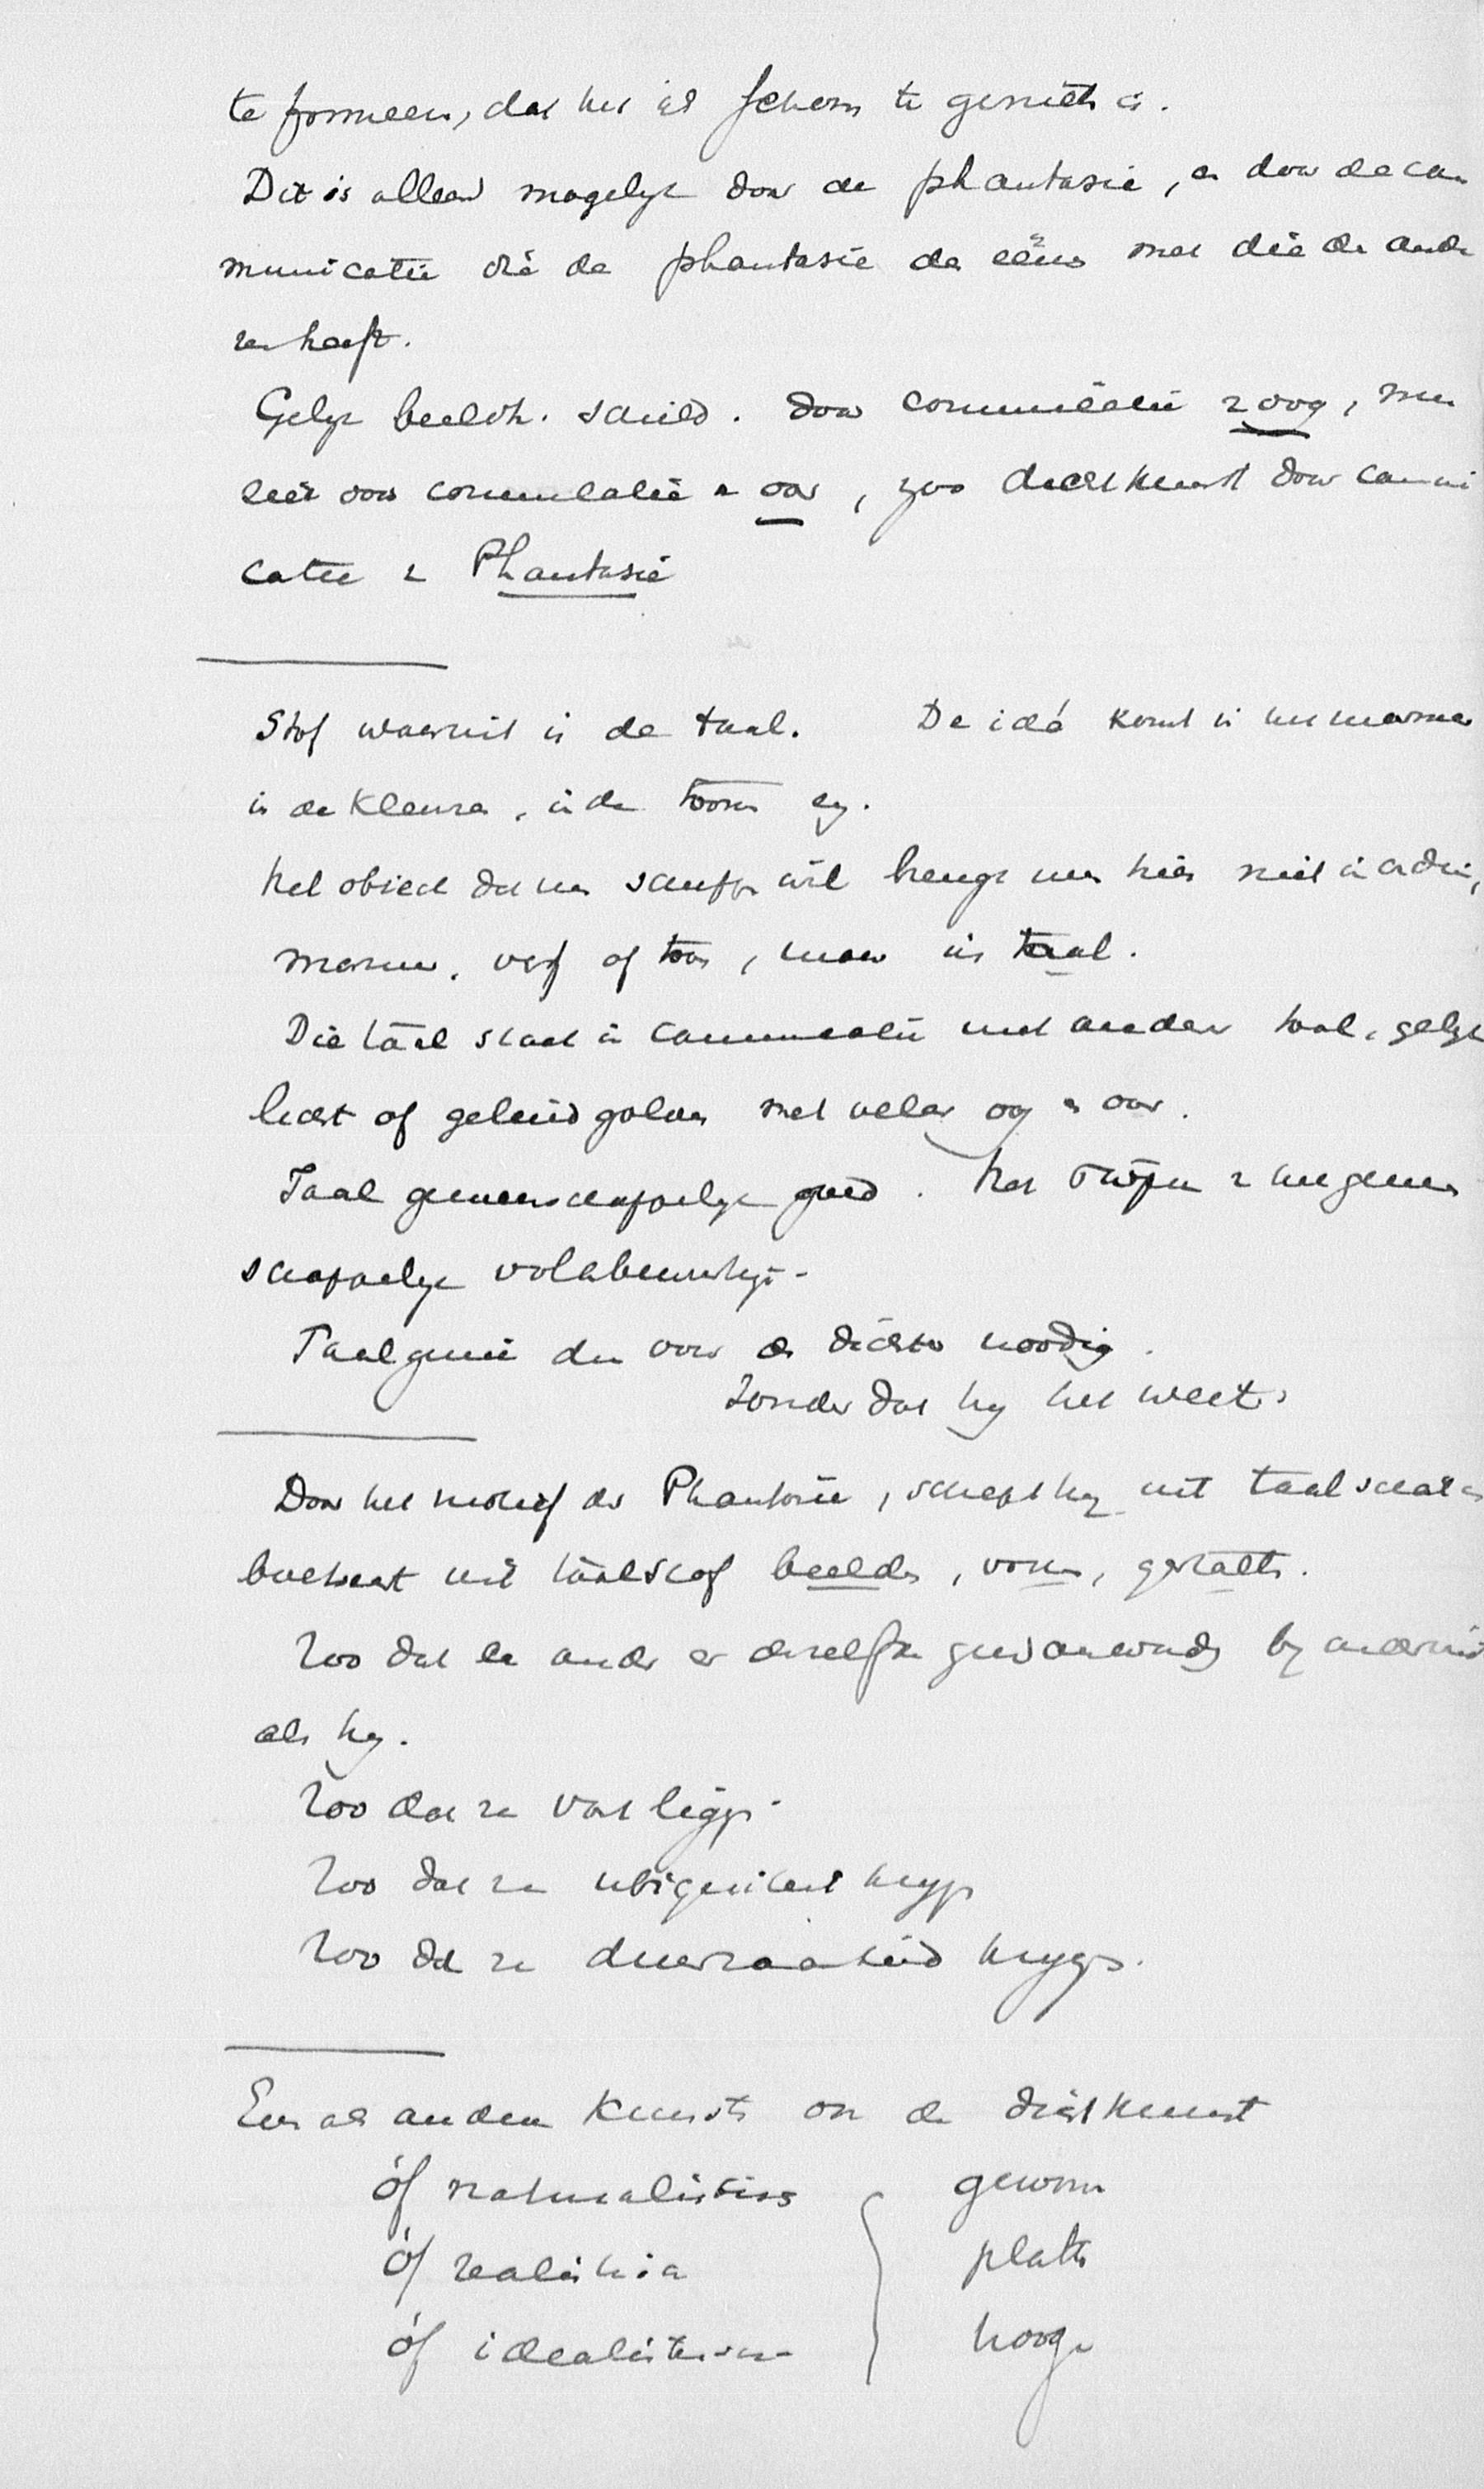 te formeeren, dat het als schoon te genieten is.
Dit is alleen mogelyk door de phantasie, en door de com
municatie die de phantasie des eenen met die der ande
ren heeft.
Gelyk beeldh. schild. door communicatie z oog, mu
ziek door communicatie z oor, zoo dichtkunst door communi
catie z Phantasie
Stof waaruit is de taal. De idé komt in het marmer
in de kleuren, in de toonen
Het object dat men scheppen wil brengt men hier niet in
marmer, verf of toon, maar in taal.
Die taal staat in communicatie met ander taal, gelyk
licht of geluidgolven met aller oog en oor.
Taal gemeenschappelyk goed. Het z het gemeen
schappelyk volksbewustzyn.
Taalgenie dus voor den dichter noodig.
Zonder dat hy het weet.
Door het motief der Phantasie, schept hy uit taalschat en
uit taalstof beelden, vormen, gestalten.
Zoo dat een ander er dezelfde by
als hy.
Zoo dat ze vast ligge
Zoo dat ze ubiquiteit kryge
Zoo dat ze duurzaamheid kryge.
Even als andere kunsten ook de dichtkunst
óf naturalistisch gewoon
óf realistisch platte
óf idealistisch hooge